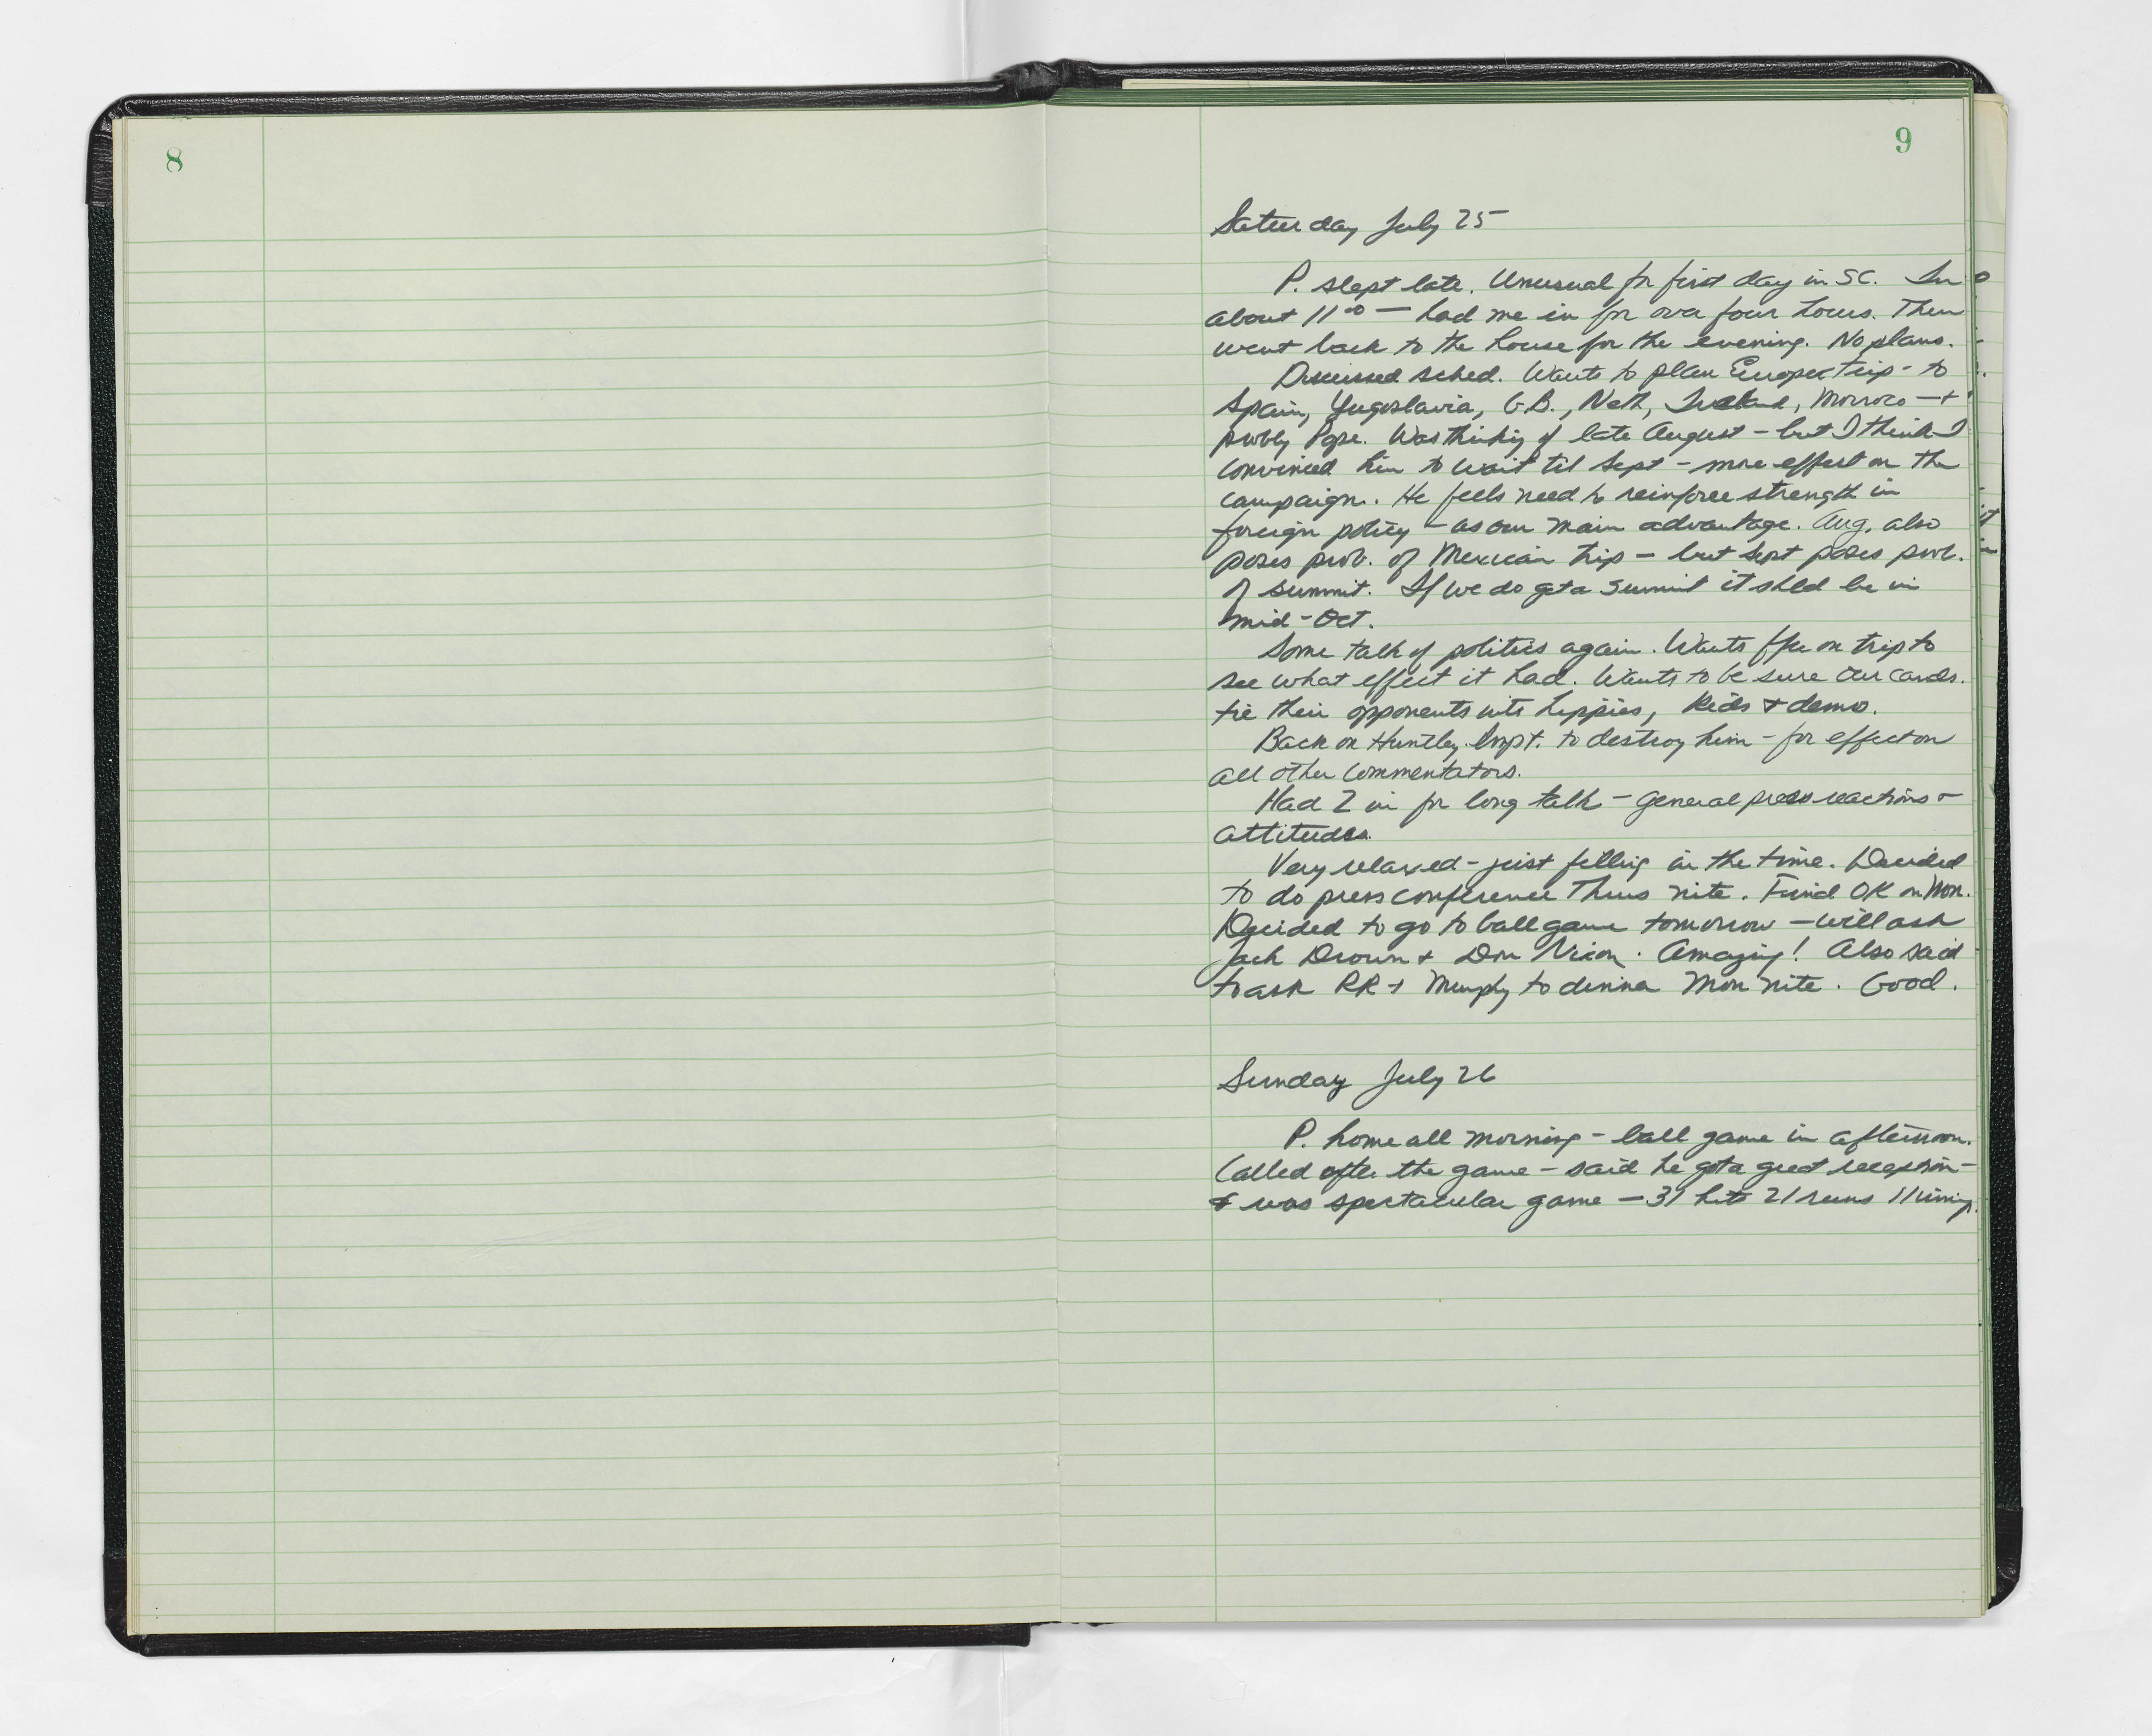 8
9
Saturday July 25
P. slept late. Unusual for first day in SC. In
about 11⁰⁰ — had me in for over four hours. Then
went back to the house for the evening. No plans.
Discussed sched. Wants to plan Europe trip - to
Spain, Yugoslavia, G.B., Neth, Ireland, Morroco — +
probly Pope. Was thinking of late August - but I think I
convinced him to wait til Sept - more effect on the
campaign. He feels need to reinforce strength in
foreign policy - as our main advantage. Aug. also
poses prob. of Mexican trip - but Sept poses prob.
of summit. If we do get a summit it shld be in
mid-Oct.
Some talk of politics again. Wants on trip to
see what effect it had. Wants to be sure our cands.
tie their opponents into hippies, kids & demo.
Back on Huntley. Impt. to destroy him - for effect on
all other commentators.
Had Z in for long talk - general press reactions +
attitudes.
Very relaxed - just filling in the time. Decided
to do press conference Thurs nite. Final OK on Mon.
Decided to go to ball game tomorrow - will ask
Jack Drown + Don Nixon. Amazing! Also said
to ask RR + Murphy to dinner Mon nite. Good.
Sunday July 26
P. home all morning - ball game in afternoon.
Called after the game - said he got a great reception -
& was spectacular game - 31 hits 21 runs 11 inning.